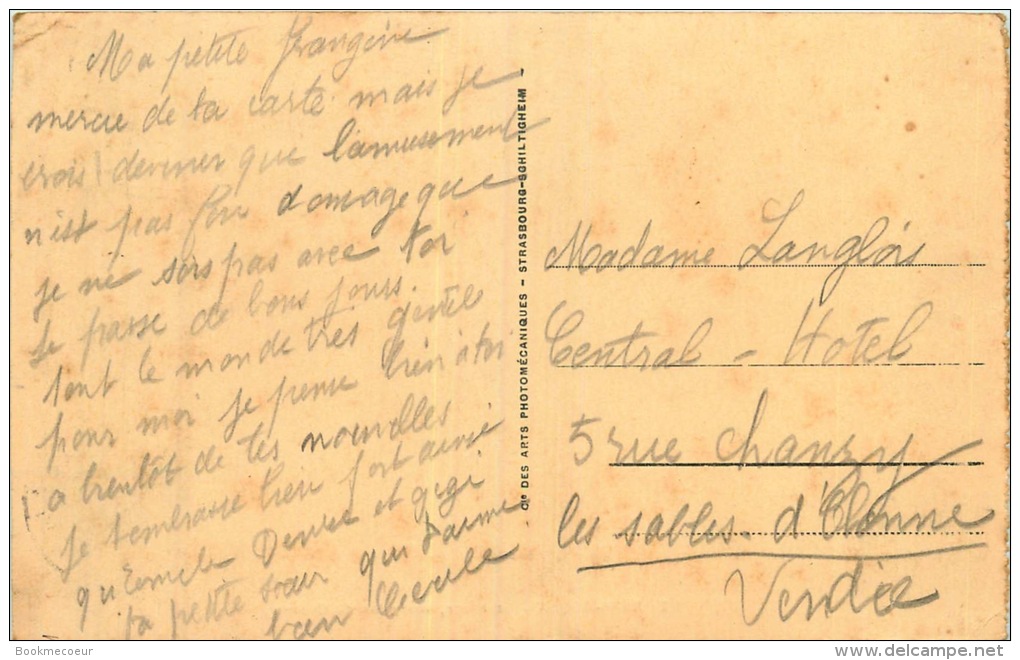 Ma petite frangine
mercie de ta carte mais je
crois deviner que l'amusement
n'est pas fou domage que
je ne sois pas avec toi
je passe de bons jours.
tout le monde très gentil
pour moi je pense bien a toi
a bientôt de tes nouvelles
je t'embrasse bien fort ainsi
qu'Emile Denise et gigi
ta petite sœur qui t'aime
bien Cecile
Cie DES ARTS PHOTOMÉCANIQUES - STRASBOURG-SCHILTIGHEIM
Madame Langlois
Central - Hotel
5 rue Chanzy
les sables. d'Olonne
Vendée
Bookmecoeur
www.delcampe.net